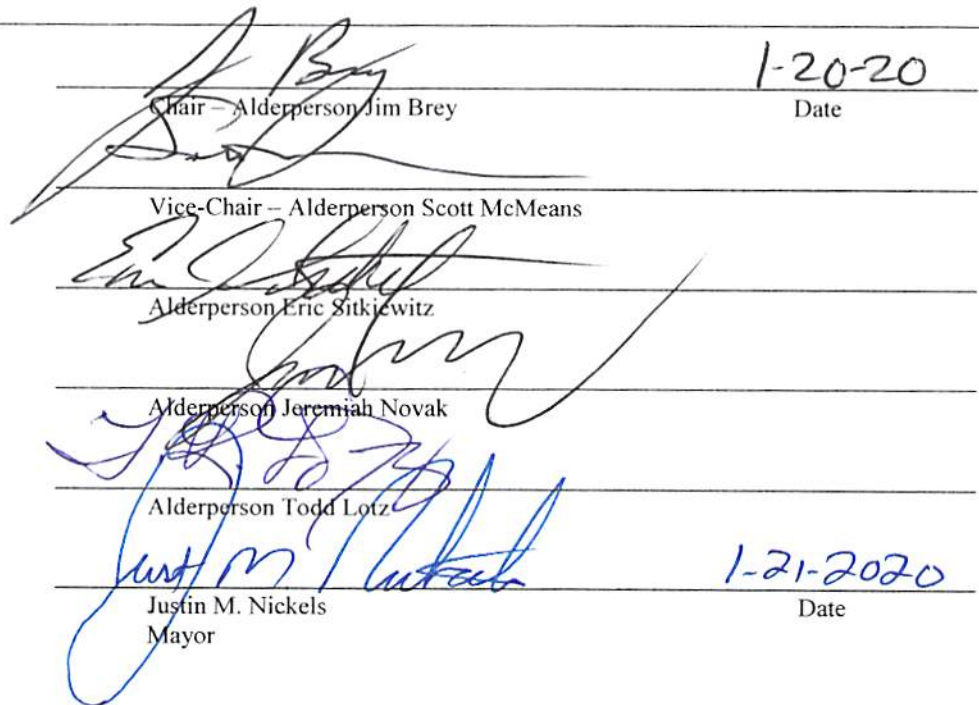 J Brey 1-20-20
Chair – Alderperson Jim Brey Date
Vice-Chair – Alderperson Scott McMeans
Alderperson Eric Sitkiewitz
Alderperson Jeremiah Novak
Alderperson Todd Lotz
Justin M Nickels 1-21-2020
Justin M. Nickels Date
Mayor